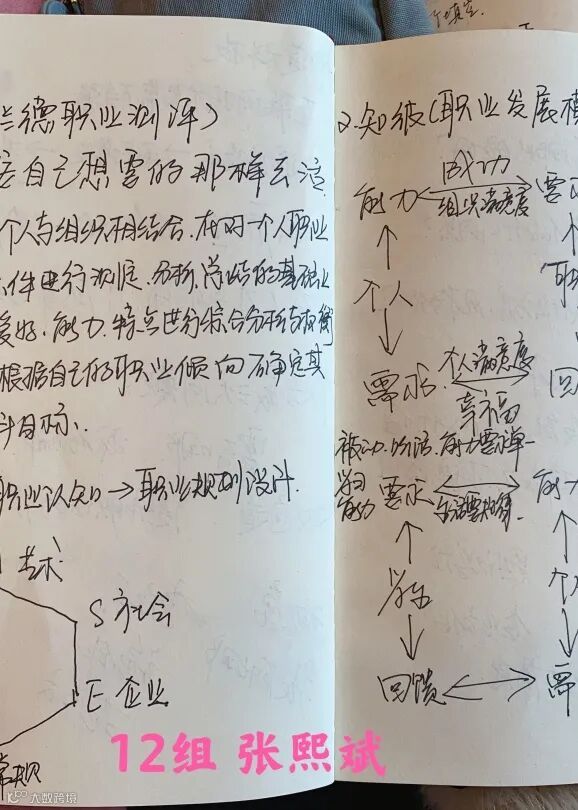 兰德职业测评)
自己想要的那样去
个人与组织相结合.在对一个人职业
件进行测定.分析.总结的基础上
爱好.能力.特点进行综合分析与权衡
根据自己的职业倾向确定其
斗目标.
职业认知→职业规划设计.
艺术
S 社会
E 企业
常规
2知彼(职业发展模
能力 成功 要
组织满意度
个人
需求 个人满意度 回
幸福
被动.吃活.能力要单一
学习能力 要求 能力
学生 个人
回馈 需
12组 张熙斌
大数跨境